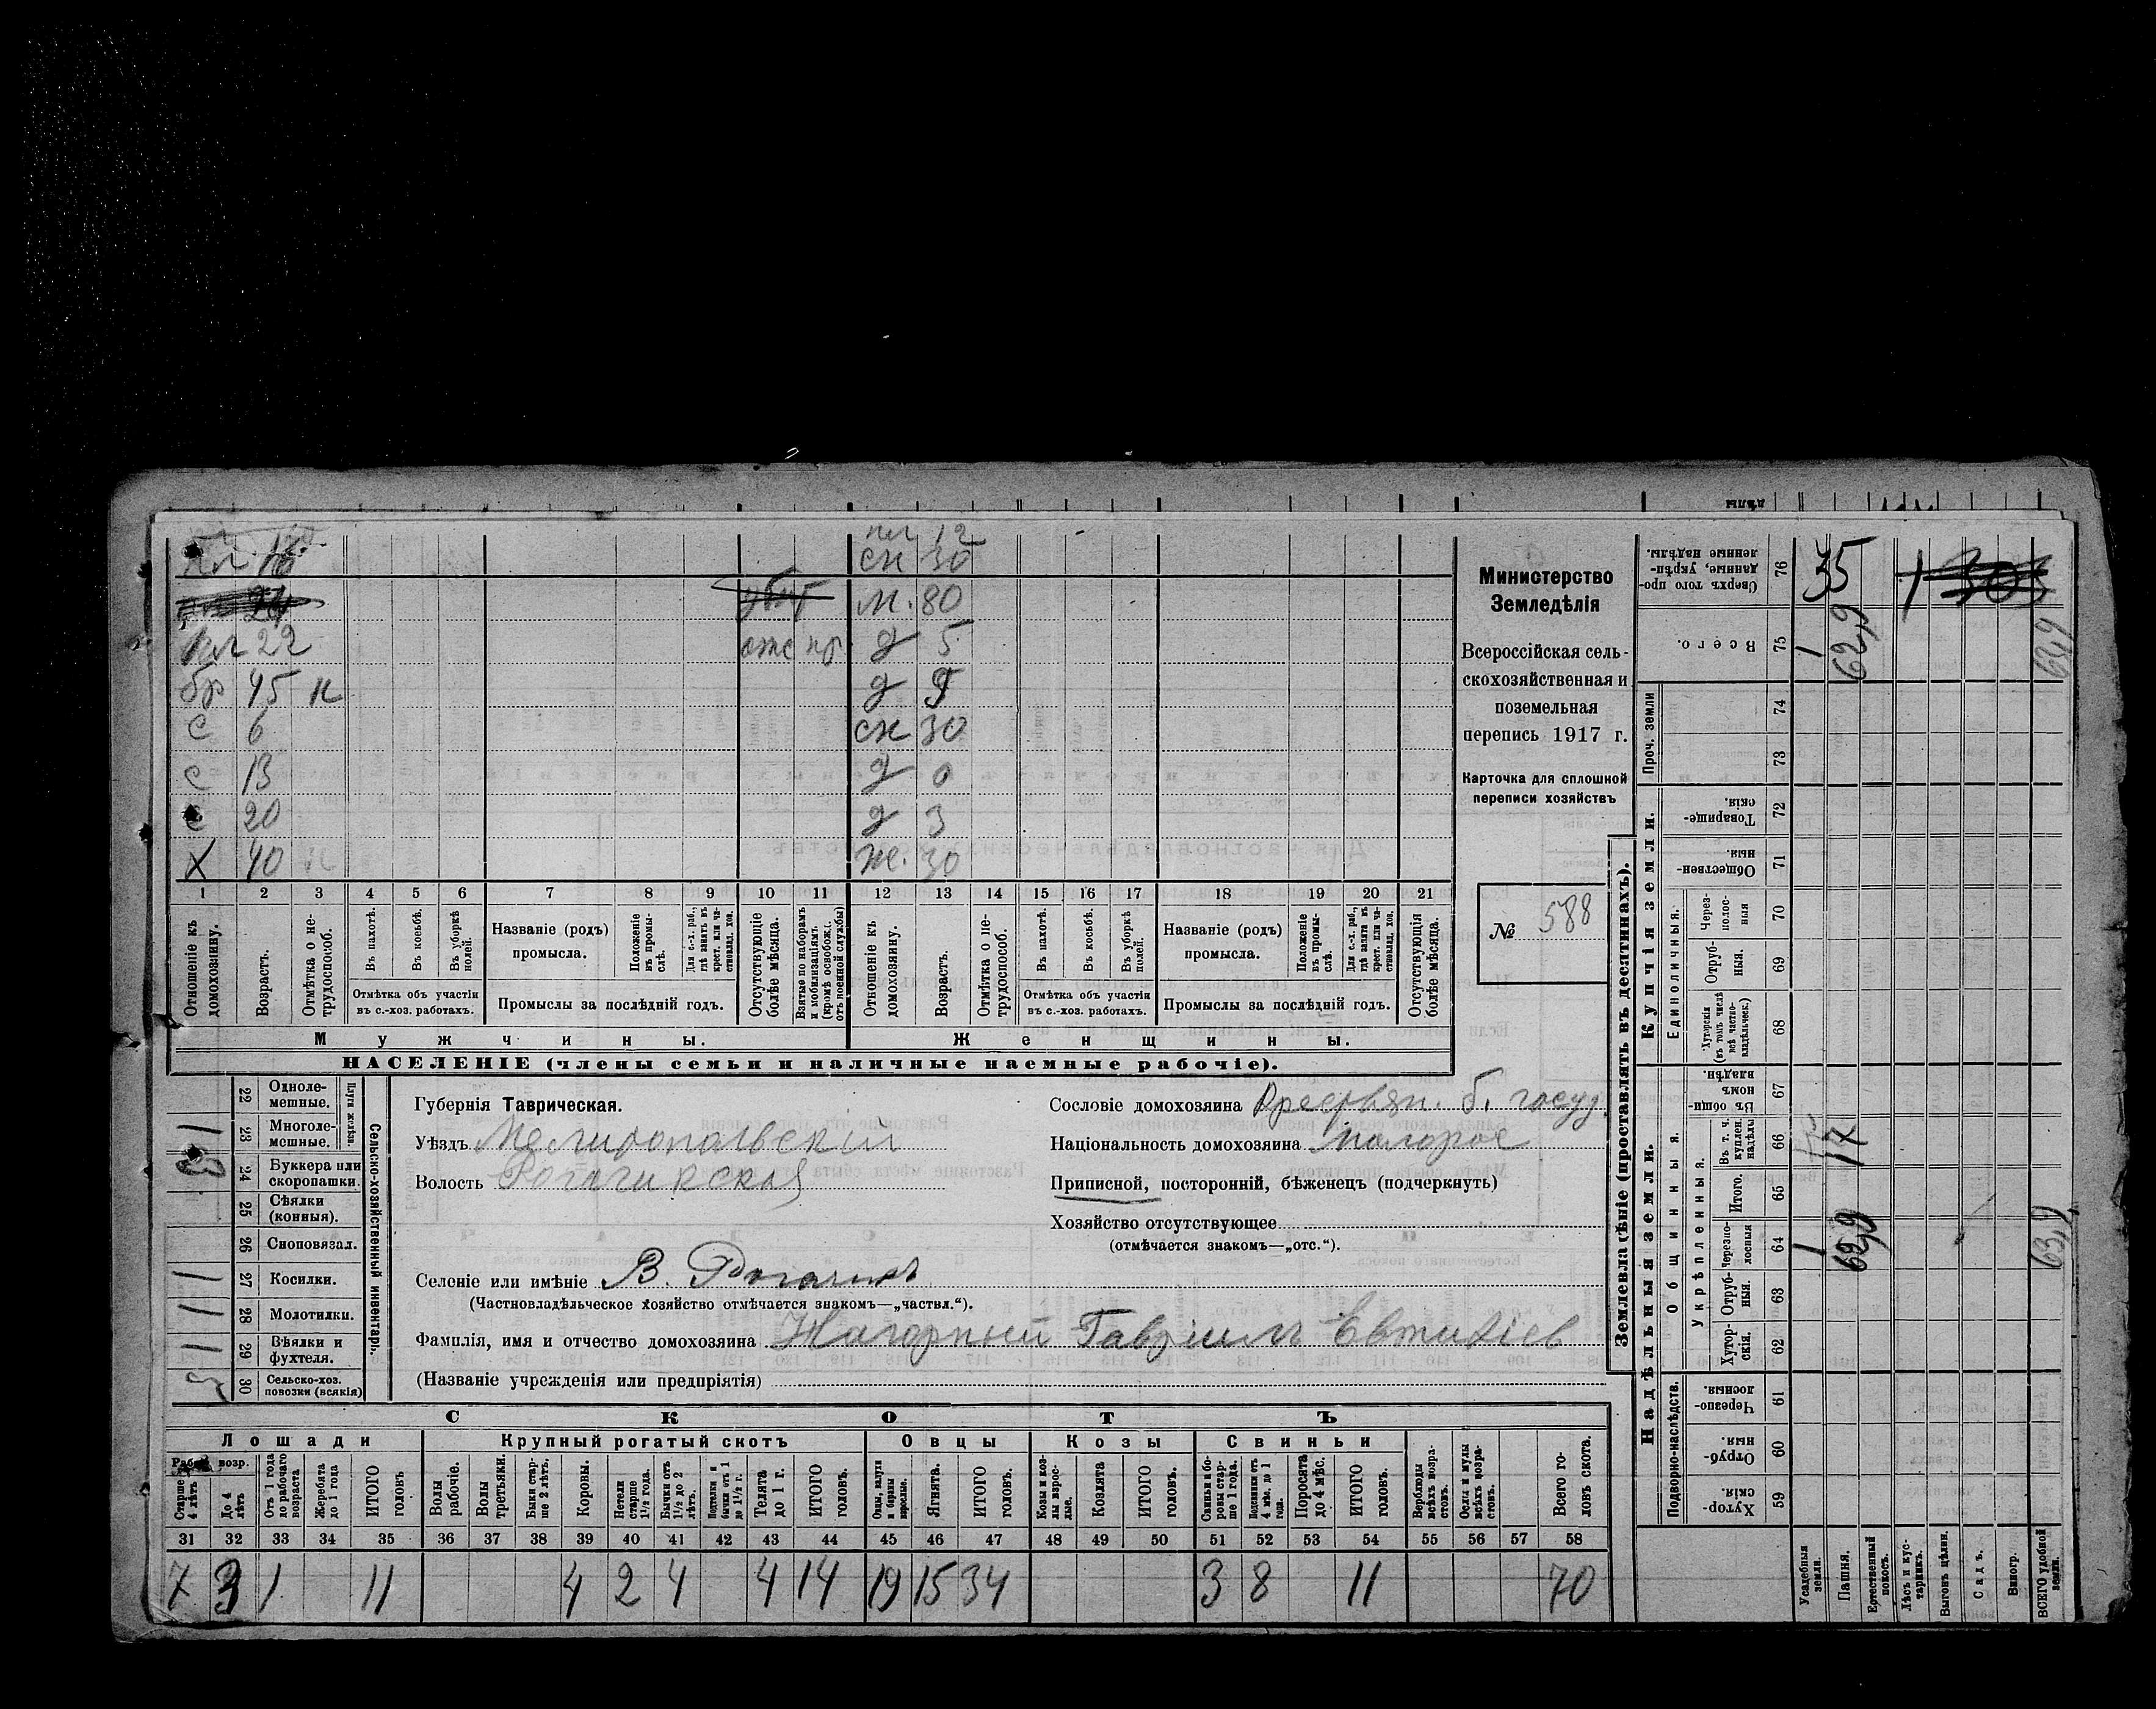 пл 12
пл 16 сн 30
м. 80
пл 22 отс пр д 5
бр 45 н д 9
с 6 сн 30
с 13 д 0
с 20 д 3
х 40 н ж. 30
1 2 3 4 5 6 7 8 9 10 11 12 13 14 15 16 17 18 19 20 21
Отношеніе къ домохозяину.
Возрастъ.
Отмѣтка о нетрудоспособ.
Въ пахотѣ.
Въ косьбѣ.
Въ уборкѣ полей.
Отмѣтка объ участіи въ с.-хоз. работахъ.
Названіе (родъ) промысла.
Положеніе въ промыслѣ.
Для с.-х. раб., гдѣ занятъ въ крест. или частновлад. хоз.
Промыслы за послѣдній годъ.
Отсутствующіе болѣе мѣсяца.
Взятые по наборамъ и мобилизаціямъ. (кромѣ освобожд. отъ военной службы)
Отношеніе къ домохозяину.
Возрастъ.
Отмѣтка о нетрудоспособ.
Въ пахотѣ.
Въ косьбѣ.
Въ уборкѣ полей.
Отмѣтка объ участіи въ с.-хоз. работахъ.
Названіе (родъ) промысла.
Положеніе въ промыслѣ.
Для с.-х. раб., гдѣ занята въ крест. или частновлад. хоз.
Промыслы за послѣдній годъ.
Отсутствующія болѣе мѣсяца.
Мужчины. Женщины.
НАСЕЛЕНІЕ (члены семьи и наличные наемные рабочіе).
Министерство
Земледѣлія
Всероссійская сель-
скохозяйственная и
поземельная
перепись 1917 г.
Карточка для сплошной
переписи хозяйствъ
№ 588
Сельско-хозяйственный инвентарь.
Плуги желѣзн.
22 Одноле-мешные.
23 Многоле-мешные. 1
24 Буккера или скоропашки.
25 Сѣялки (конныя).
26 Сноповязал.
27 Косилки. 1
28 Молотилки. 1
29 Вѣялки и фухтеля. 1
30 Сельско-хоз. повозки (всякія) 3
Губернія Таврическая.
Уѣздъ Мелитопольскій
Волость Рогачикская
Селеніе или имѣніе В. Рогачикъ
(Частновладѣльческое хозяйство отмѣчается знакомъ—„частвл.“).
Фамилія, имя и отчество домохозяина Нагорный Гавріилъ Евтихіев
(Названіе учрежденія или предпріятія)
Сословіе домохозяина Крестьян. б. госуд.
Національность домохозяина малорос
Приписной, посторонній, бѣженецъ (подчеркнуть)
Хозяйство отсутствующее
(отмѣчается знакомъ—„отс.“).
СКОТЪ
Лошади Крупный рогатый скотъ Овцы Козы Свиньи
Старше 4 лѣтъ
До 4 лѣтъ
Отъ 1 года до рабочаго возраста
Жеребята до 1 года
ИТОГО головъ
Волы рабочіе.
Волы третьяки.
Быки старше 2 лѣтъ.
Коровы.
Нетели старше 1½ года.
Бычки отъ 1½ до 2 лѣтъ.
Телята до 1 г.
ИТОГО головъ.
Ягнята.
ИТОГО головъ.
Козы и козлы взрослые.
Козлята
ИТОГО головъ.
Свиньи и боровы старше 1 года.
Поросята до 4 мѣс.
ИТОГО головъ.
Верблюды всѣхъ возрастовъ.
Ослы и мулы всѣхъ возрастовъ.
Всего головъ скота.
31 32 33 34 35 36 37 38 39 40 41 42 43 44 45 46 47 48 49 50 51 52 53 54 55 56 57 58
7 3 1 11 4 2 4 4 14 19 15 34 3 8 11 70
Землевладѣніе (проставлять въ десятинахъ).
Надѣльныя земли. Купчія земли. Проч. земли
Подворно-наслѣдств. Общинныя. Укрѣпленныя. Единоличныя.
59 Хуторскія.
60 Отрубныя.
61 Черезполосныя.
62 Хуторскія.
63 Отрубныя.
64 черезполосныя 1 62,9 63,9
65 Итого.
66 Въ т. ч. куплен. надѣлы 17
67 Въ общинномъ владѣн.
68 Хуторскія (въ томъ числѣ всѣ частновладѣльческ.)
69 Отрубныя.
70 Черезполосныя
71 Общественныя.
72 Товарищескія.
73
74
75 Всего. 1 62,9 62,9
76 Сверхъ того проданные, укрѣпленные надѣлы. 35
Усадебныя земли.
Пашня.
Естественный покосъ.
Лѣсъ и кустарникъ.
Выгонъ цѣлин.
Садъ.
Виногр.
ВСЕГО удобной земли.